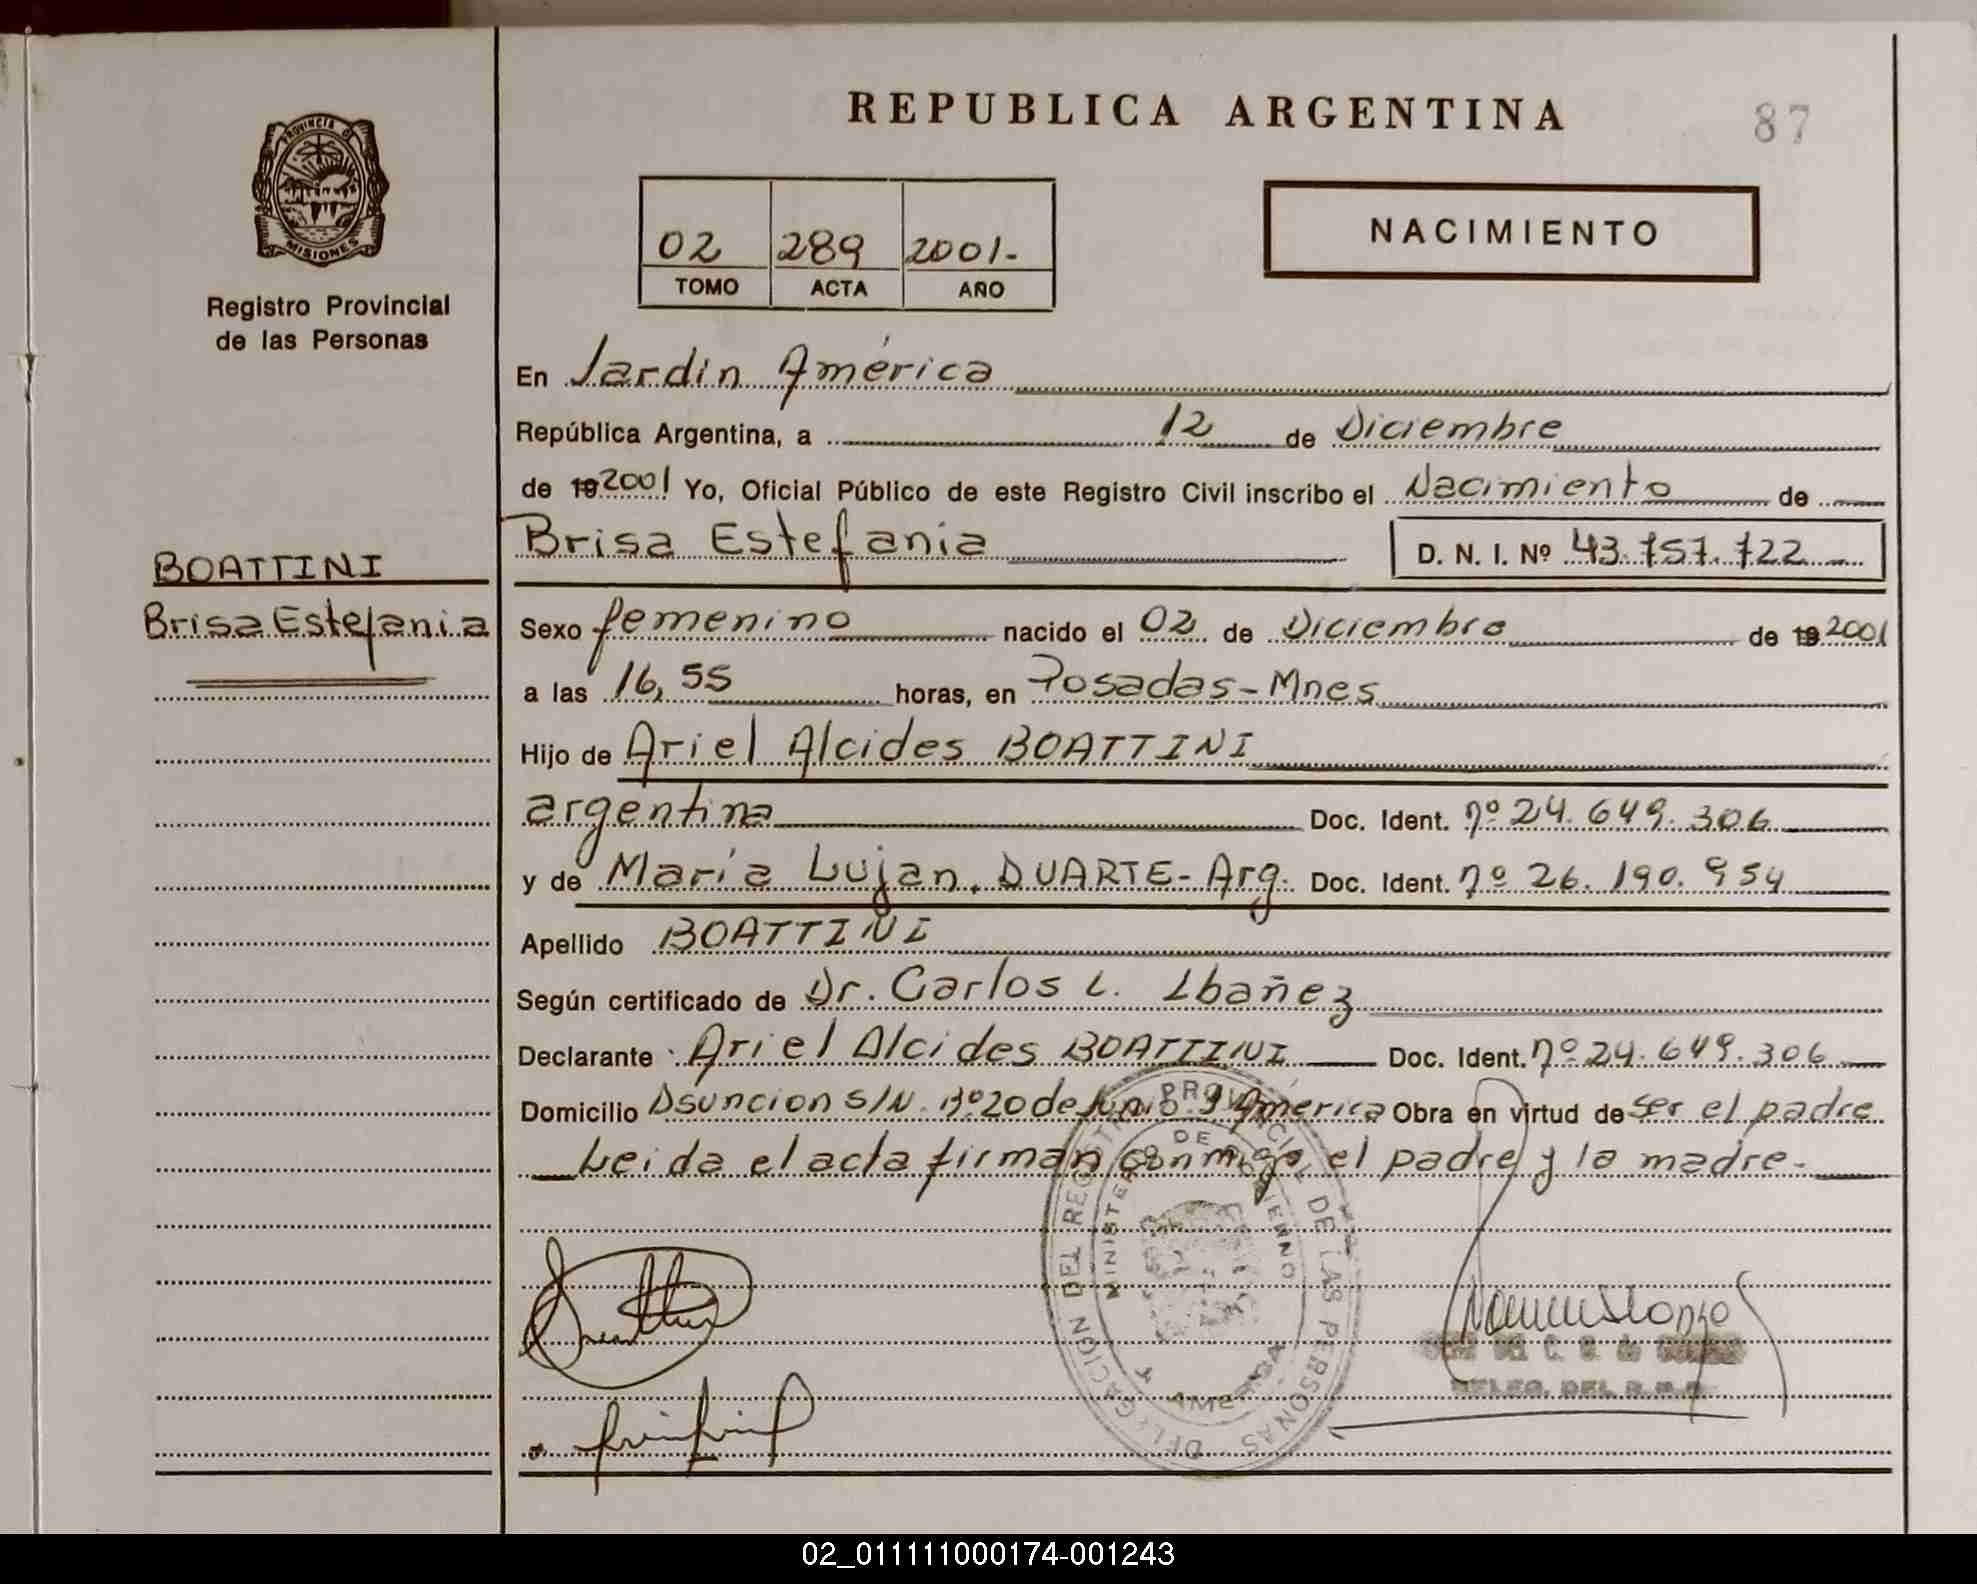 REPUBLICA ARGENTINA
87
PROVINCIA D
MISIONES
Registro Provincial
de las Personas
02 289 2001.-
TOMO ACTA AÑO
NACIMIENTO
En Jardin América
República Argentina, a 12 de Diciembre
de 192001 Yo, Oficial Público de este Registro Civil inscribo el Nacimiento de
Brisa Estefania D. N. I. Nº 43.757.722
BOATTINI
Brisa Estefania
Sexo femenino nacido el 02 de Diciembre de 192001
a las 16,55 horas, en Posadas-Mnes
Hijo de Ariel Alcides BOATTINI
argentina Doc. Ident. nº 24.649.306
y de María Lujan DUARTE-Arg. Doc. Ident. nº 26.190.954
Apellido BOATTINI
Según certificado de Dr. Carlos L. Ibañez
Declarante Ariel Alcides BOATTINI Doc. Ident. nº 24.649.306
Domicilio Asuncion S/N. Bº 20 de Junio J América Obra en virtud de ser el padre
Leida el acta firman conmigo el padre y la madre-
DELEGACIÓN DEL REGISTRO PROVINCIAL DE LAS PERSONAS
MINISTERIO DE GOBIERNO
J. AMERICA
DELEG. DEL R.P.P.
02_011111000174-001243